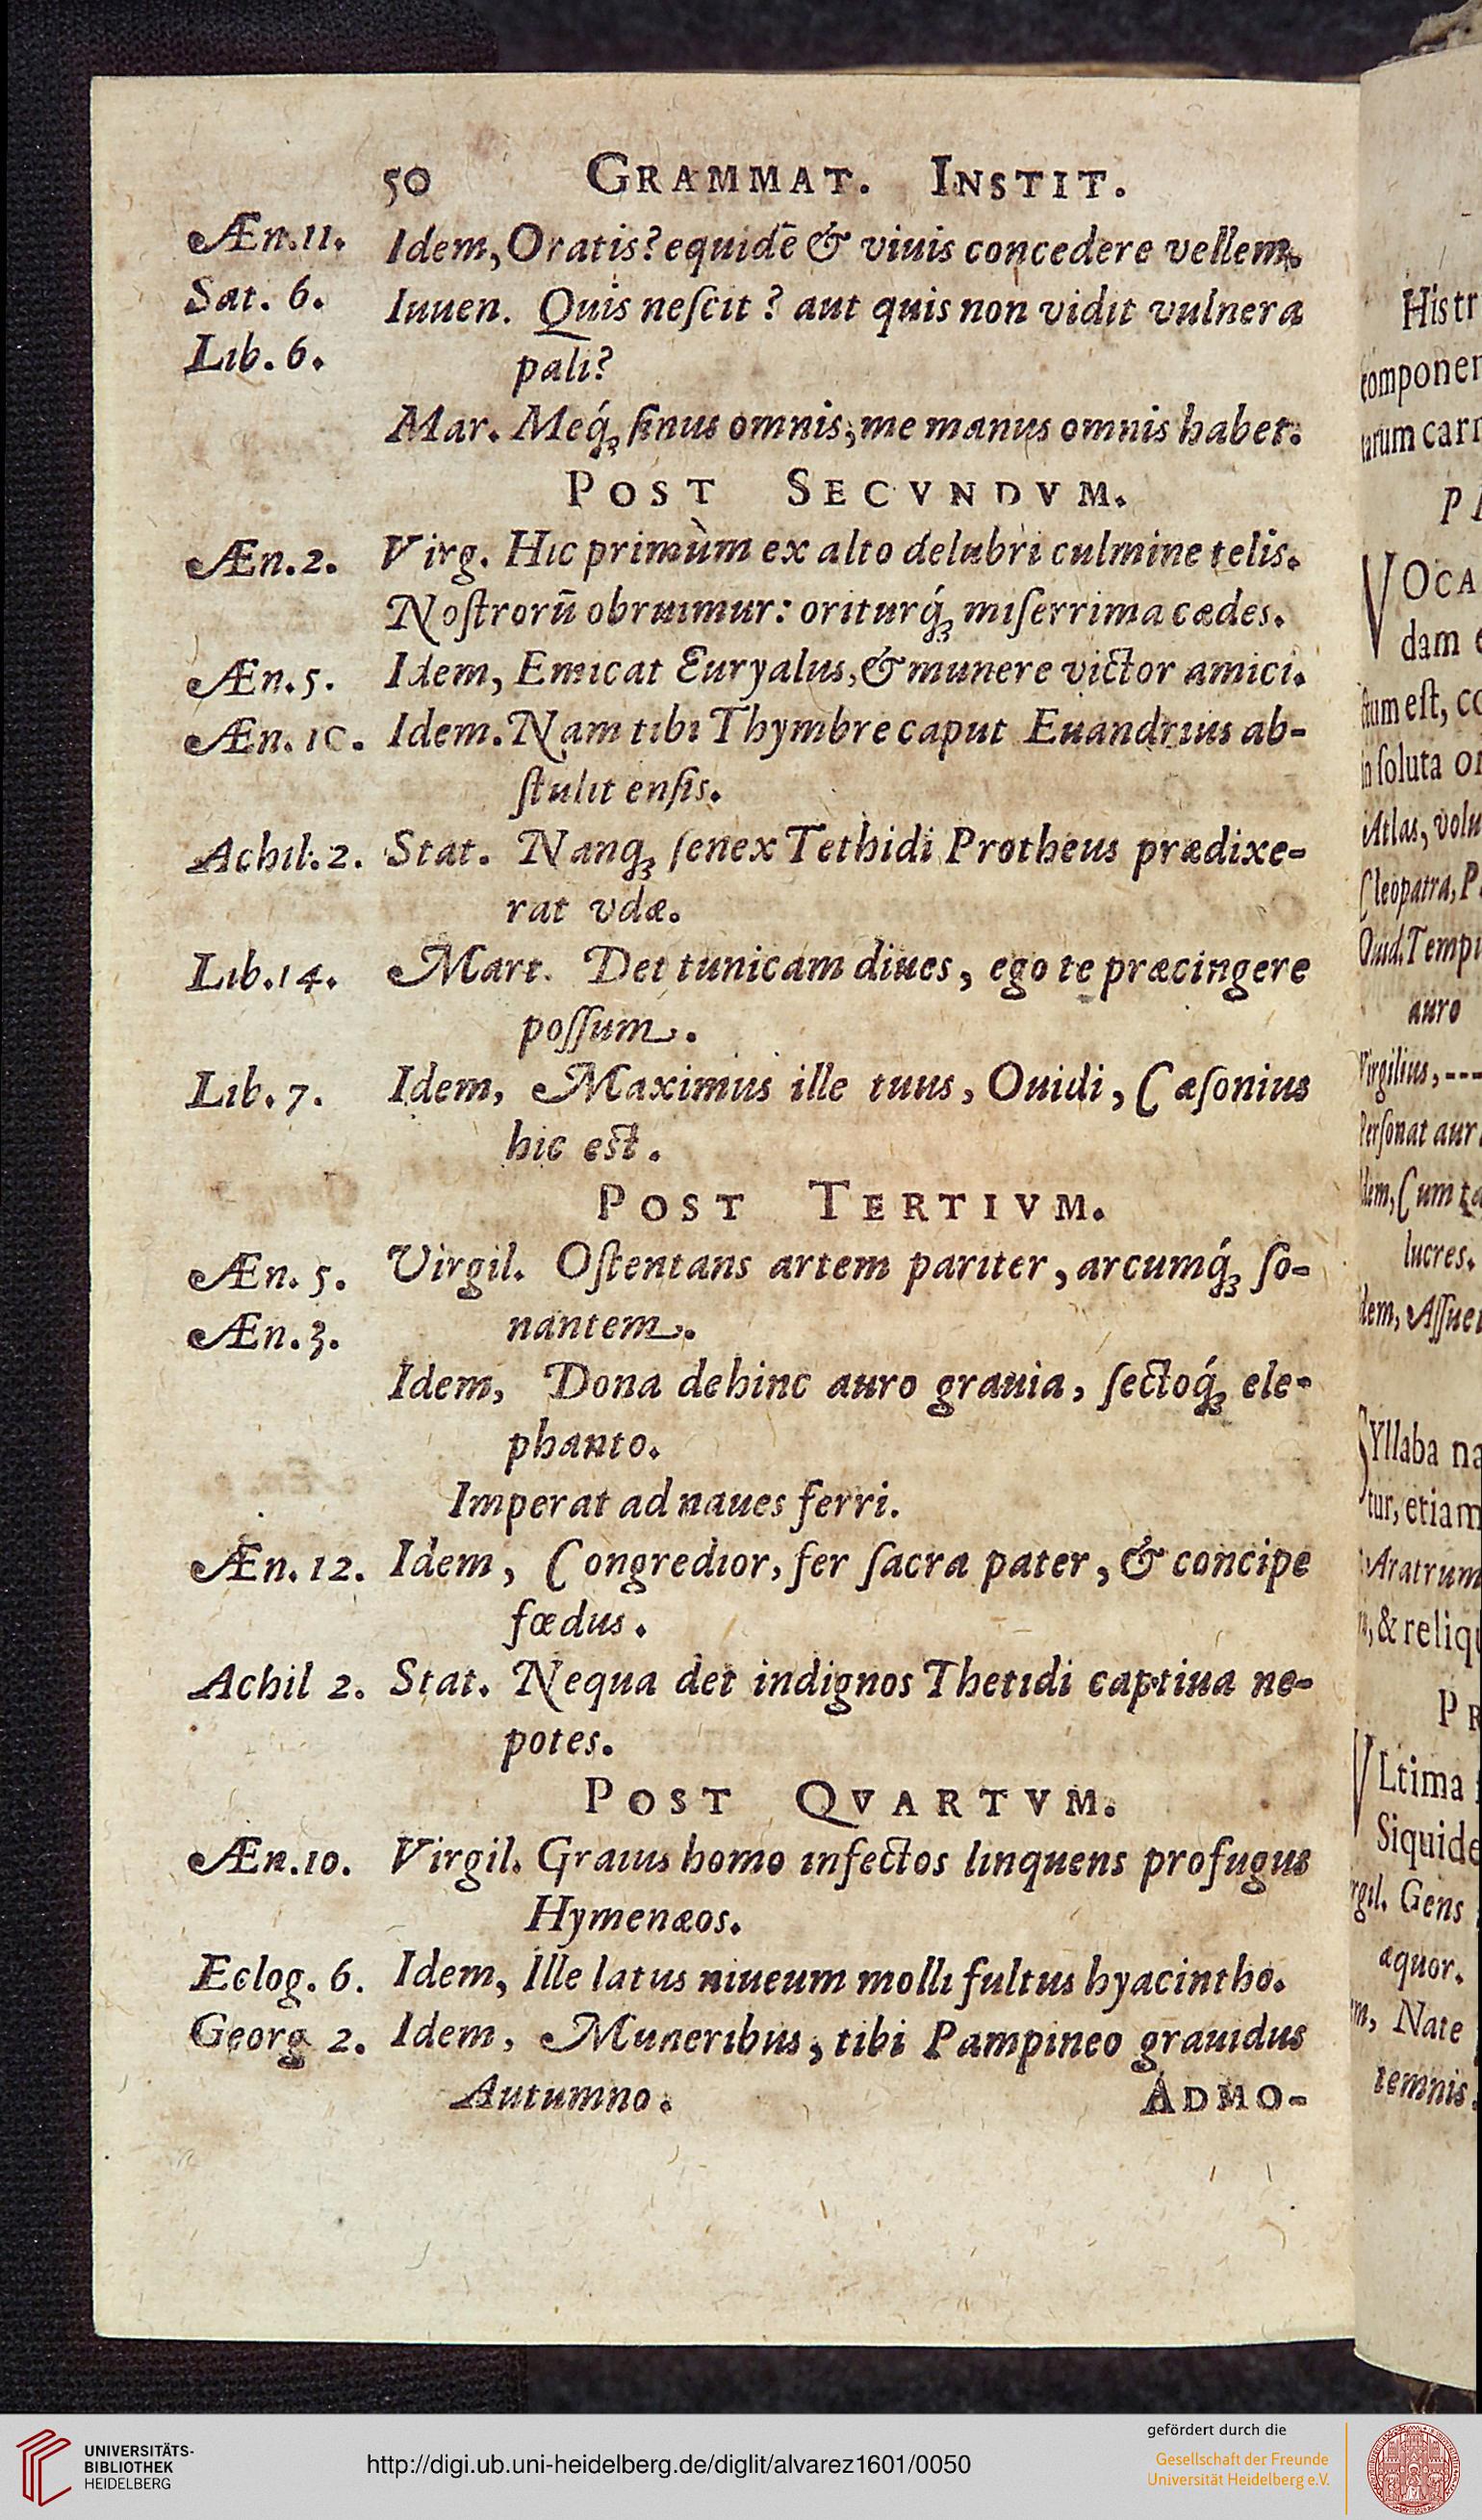 50 GRAMMAT. INSTIT.
Æn. 11. Idem, Oratis? equidē & viuis concedere vellem.
Sat. 6. Iuuen. Quis neſcit? aut quis non vidit vulnera
Lib. 6. pali?
Mar. Meq́ꝫ ſinus omnis, me manus omnis habet.
POST SECVNDVM.
Æn. 2. Virg. Hic primùm ex alto delubri culmine telis.
Noſtrorū obruimur: oriturq́ꝫ miſerrima cædes.
Æn. 5. Idem, Emicat Euryalus, & munere victor amici.
Æn. 10. Idem. Nam tibi Thymbre caput Euandrius ab-
ſtulit enſis.
Achil. 2. Stat. Nanqꝫ ſenex Tethidi Protheus prædixe-
rat vdæ.
Lib. 14. Mart. Det tunicam diues, ego te præcingere
poſſum.
Lib. 7. Idem, Maximus ille tuus, Ouidi, Cæſonius
hic eſt.
POST TERTIVM.
Æn. 5. Virgil. Oſtentans artem pariter, arcumq́ꝫ ſo-
Æn. 3. nantem.
Idem, Dona dehinc auro grauia, ſectoq́ꝫ ele-
phanto.
Imperat ad naues ferri.
Æn. 12. Idem, Congredior, fer ſacra pater, & concipe
fœdus.
Achil 2. Stat. Nequa det indignos Thetidi captiua ne-
potes.
POST QVARTVM.
Æn. 10. Virgil. Graius homo infectos linquens profugus
Hymenæos.
Eclog. 6. Idem, Ille latus niueum molli fultus hyacintho.
Georg 2. Idem, Muneribus, tibi Pampineo grauidus
Autumno. ADMO-
Histr
componer
tarum carr
VOCA
dam
ſtum eſt, co
in ſoluta or
Atlas, volu
Cleopatra, P
Ouid. Temp
auro
Virgilius, ---
Perſonat aur
Idem, Cum ta
lucres.
Idem, Aſſue
SYllaba na
tur, etiam
Aratrum
, & reliqu
PR
VLtima
Siquide
Virgil. Gens
æquor.
Idem, Nate
temnis.
UNIVERSITÄTS-
BIBLIOTHEK
HEIDELBERG
http://digi.ub.uni-heidelberg.de/diglit/alvarez1601/0050
gefördert durch die
Gesellschaft der Freunde
Universität Heidelberg e.V.